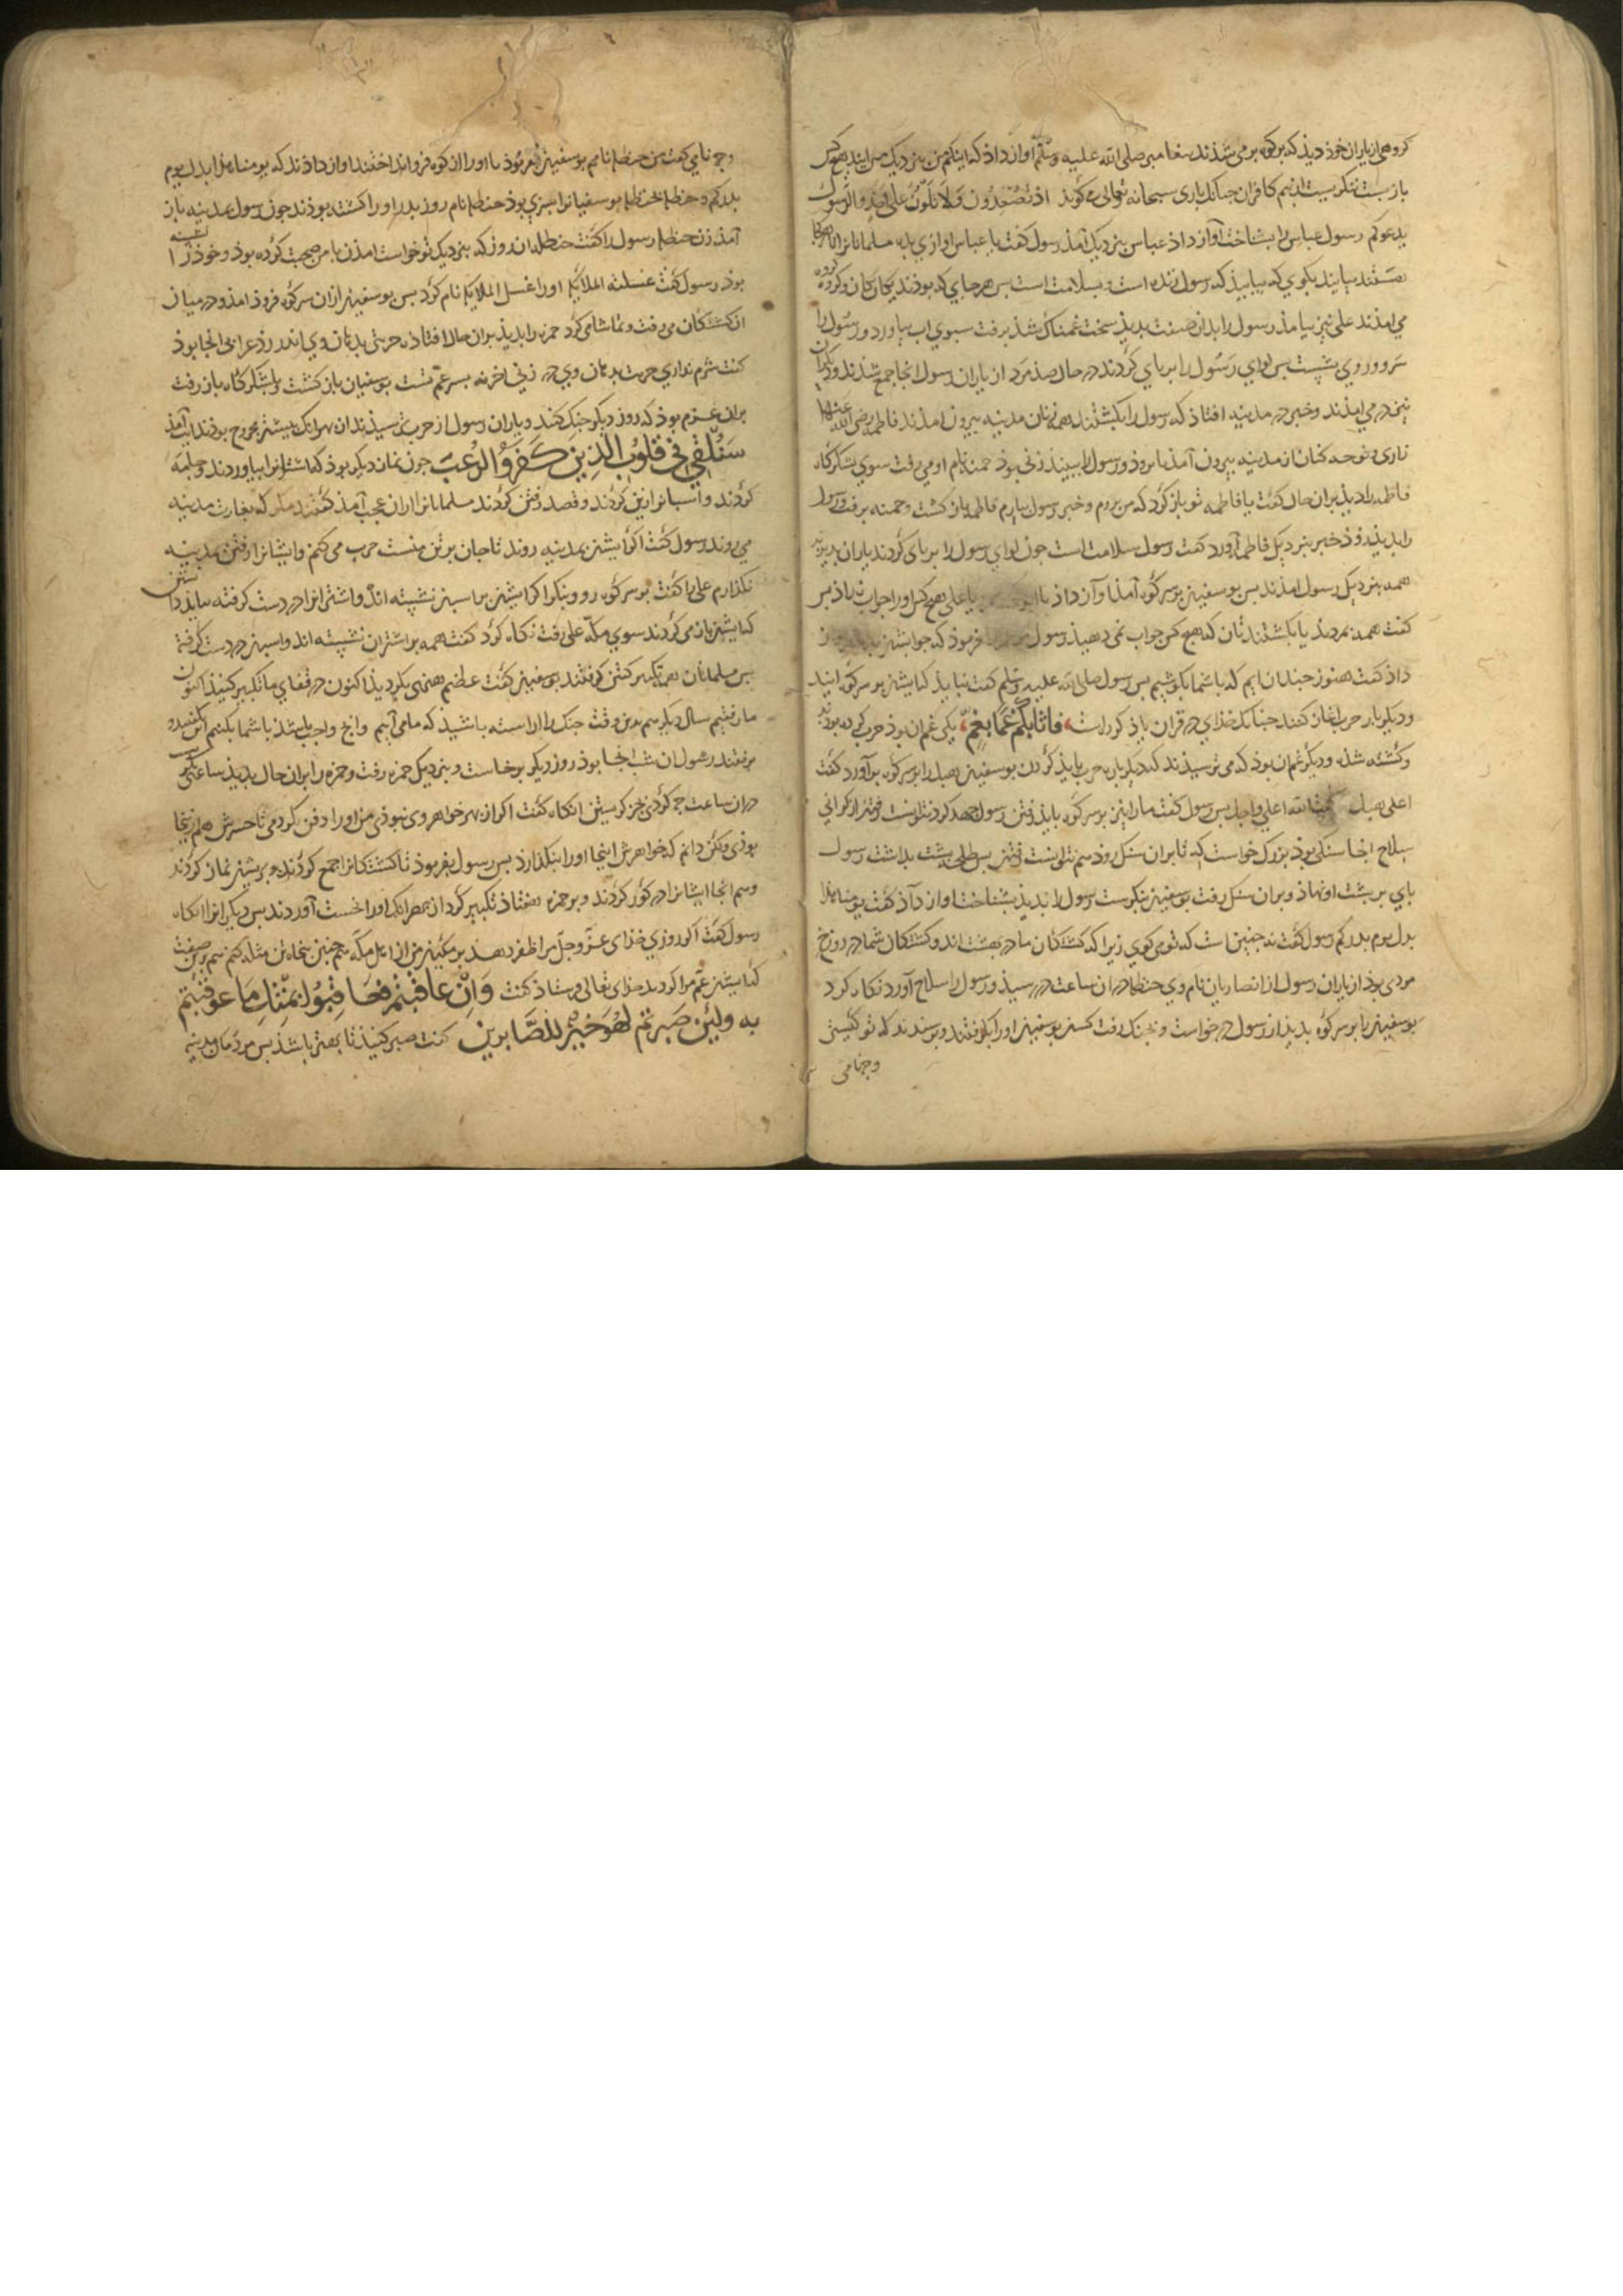 کروهی از یاران خوذ دیذ که بر کوه بر می شذند بیغامبر صلی الله علیه وسلم آواز داذ که اینکم من بنزدیک من ایید هیچ کس
باز بست ننکریست از بیم کافران جنانک باری سبحانه تعالی می کوید اذ تصعدون ولا تلون علی احد والرسول
یدعوکم رسول عباس را بشناخت آواز داذ عباس بنزدیک آمذ رسول کفت یا عباس اوازی بده مسلمانانرا تا هرکجا
هستند بیایند بکوی که بیاییذ که رسول زنده است و بسلامت است بس هر جای که بوذند یکان یکان و کروه کروه
می امذند علی نیز بیامذ رسول را بدان صفت بدیذ سخت غمناک شذ برفت سبوی اب بیاورد و رسول را
سر و روی بشست بس لوای رسول را بربای کردند در حال صذ مرد از یاران رسول انجا جمع شذند و دیکران
نیز در می امذند و خبر در مدینه افتاذ که رسول را بکشتند همه زنان مدینه بیرون امذند فاطمه رضی الله عنها
زاری و نوحه کنان از مدینه بیرون آمذ تا بروذ و رسول را ببیند زنی بوذ حمنه نام او می رفت سوی لشکرکاه
فاطمه را دیذ بران حال کفت یا فاطمه تو باز کرد که من بروم و خبر رسول بیارم فاطمه باز کشت و حمنه برفت و رسول
را بدیذ و زوذ خبر بنزدیک فاطمه آورد کفت رسول بسلامت است جون لوای رسول را بربای کردند یاران
همه بنزدیک رسول امذند بس بوسفین بر سر کوه آمذ آواز داذ یا یا علی هیچ کس او را جواب نداذ بس
کفت همه بمردند یا بکشتندتان که هیچ کس جواب نمی دهیذ رسول فرموذ که جوابش
داذ کفت هنوز جندان ایم که با شما بکوشیم بس رسول صلی الله علیه وسلم کفت نبایذ که ایشان بر سر کوه ایند
و دیکر بار حرب اغاز کنند جنانک خذای در قران یاذ کرد است فاثابکم غما بغم یکی غم ان بوذ حرب کرده بوذند
و کشته شذه و دیکر غم ان بوذ که می ترسیذند که دیکر باره حرب بایذ کردن بوسفین هبل را بر سر کوه بر آورد کفت
اعلی هبل الله اعلی واجل بس رسول کفت ما را نیز بر سر کوه بایذ رفتن رسول جهد کرد نتوانست رفتن از کرانی
سلاح انجا سنکی بوذ بزرک خواست که تا بران سنک روذ هم نتوانست رفتن بس طلحه بشت بداشت رسول
بای بر بشت او نهاذ و بران سنک رفت بوسفین بنکریست رسول را بدیذ بشناخت اواز داذ کفت یومنا هذا
بدل یوم بدرکم رسول کفت نه جنین است که تو می کوی زیرا که کشتکان ما در بهشت اند و کشتکان شما در دوزخ
مردی بوذ از یاران رسول از انصاریان نام وی حنظله در ان ساعت در رسیذ و رسول را سلاح آورد نکاه کرد
بوسفین را بر سر کوه بدیذ از رسول در خواست و بجنک رفت کسن بوسفین او را بکرفتند و برسیذند که تو کیستی
و جه نامی
وجه نامی کفت من حنظله نامم بوسفین بفرموذ تا او را از کوه فرو انداختند اواز داذند که یومنا هذا بدل یوم
بدرکم و حنظله بحنظله بوسفیانرا بسری بوذ حنظله نام روز بدر او را کشته بوذند جون رسول بمدینه باز
آمذ زن حنظله رسول را کفت حنظله ان روز که بنزدیک تو خواست امذن با من صحبت کرده بوذ و خوذ را نشسته
بوذ رسول کفت غسلته الملایکه او را غسل الملایکه نام کرد بس بوسفین از ان سر کوه فروذ امذ و در میان
ان کشتکان می رفت و تماشا می کرد حمزه را بدیذ بران حال افتاذه حربتی بدهان وی اندر زذ عرابی انجا بوذ
کفت شرم نداری حربت بدهان وی در زنی اخر نه بسر عم تست بوسفیان باز کشت و بلشکرکاه باز رفت
بران عزم بوذ که روز دیکر جنک کند و یاران رسول از حرب می ترسیذند از بهر انک بیشتر مجروح بوذند ایت آمذ
سنلقی فی قلوب الذین کفروا الرعب جون نماز دیکر بوذ کفار اشترانرا بیاوردند و جله
کردند و اسبانرا زین کردند و قصد رفتن کردند مسلمانانرا از ان عجب آمذ کفتند مکر که بغارت مدینه
می روند رسول کفت اکر ایشن بمدینه روند تا جان بر تن منست حرب می کنم و ایشانرا در رفتن مدینه
نکذارم علی را کفت بر سر کوه رو و بنکر اکر ایشن بر اسبن نشسته اند و اشترانرا در دست کرفته ببایذ دانستن
که ایشن باز می کردند سوی مکه علی رفت نکاه کرد کفت همه بر اشتران نشسته اند و اسبن در دست کرفته
بس مسلمانان همه تکبیر کفتن کرفتند بوسفین کفت عظیم هزمتی بکردیذ اکنون در قفای ما تکبیر کنیذ اکنون
ما رفتیم سال دیکر هم بدین وقت جنک را اراسته باشیذ که ما می آییم وانج واجب باشذ با شما بکنیم
برفتند رسول ان شب انجا بوذ روز دیکر برخاست و بنزدیک حمزه رفت و حمزه را بران حال بدیذ ساعتی
در ان ساعت جه کردی بجز کریستن انکاه کفت اکر از بهر خواهر وی نبوذی من او را دفن نکردمی تا حشرش هم از ینجا
بوذی ولکن دانم که خواهرش اینجا او را بنکذارد بس رسول بفرموذ تا کشتکانرا جمع کردند و بریشن نماز کردند
و هم انجا ایشانرا در کور کردند و بر حمزه هفتاذ تکبیر کرد از بهر انک او را نخست آوردند بس دیکرانرا انکاه
رسول کفت اکر روزی خذای عز و جل مرا ظفر دهد بر مکیین من از اهل مکه هم جنین بنجاه تن مثله کنم هم برین صفت
که ایشن عم مرا کردند خذای تعالی فرستاذ کفت وان عاقبتم فعاقبوا بمثل ما عوقبتم
به ولئن صبرتم لهو خیر للصابرین کفت صبر کنیذ تا بهتر باشذ بس مردمان مدینه